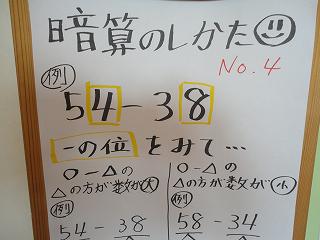 暗算のしかた
No.4
例
54-38
一の位をみて…
○-△の
△の方が数が大
例
54-38
○-△の
△の方が数が小
例
58-34